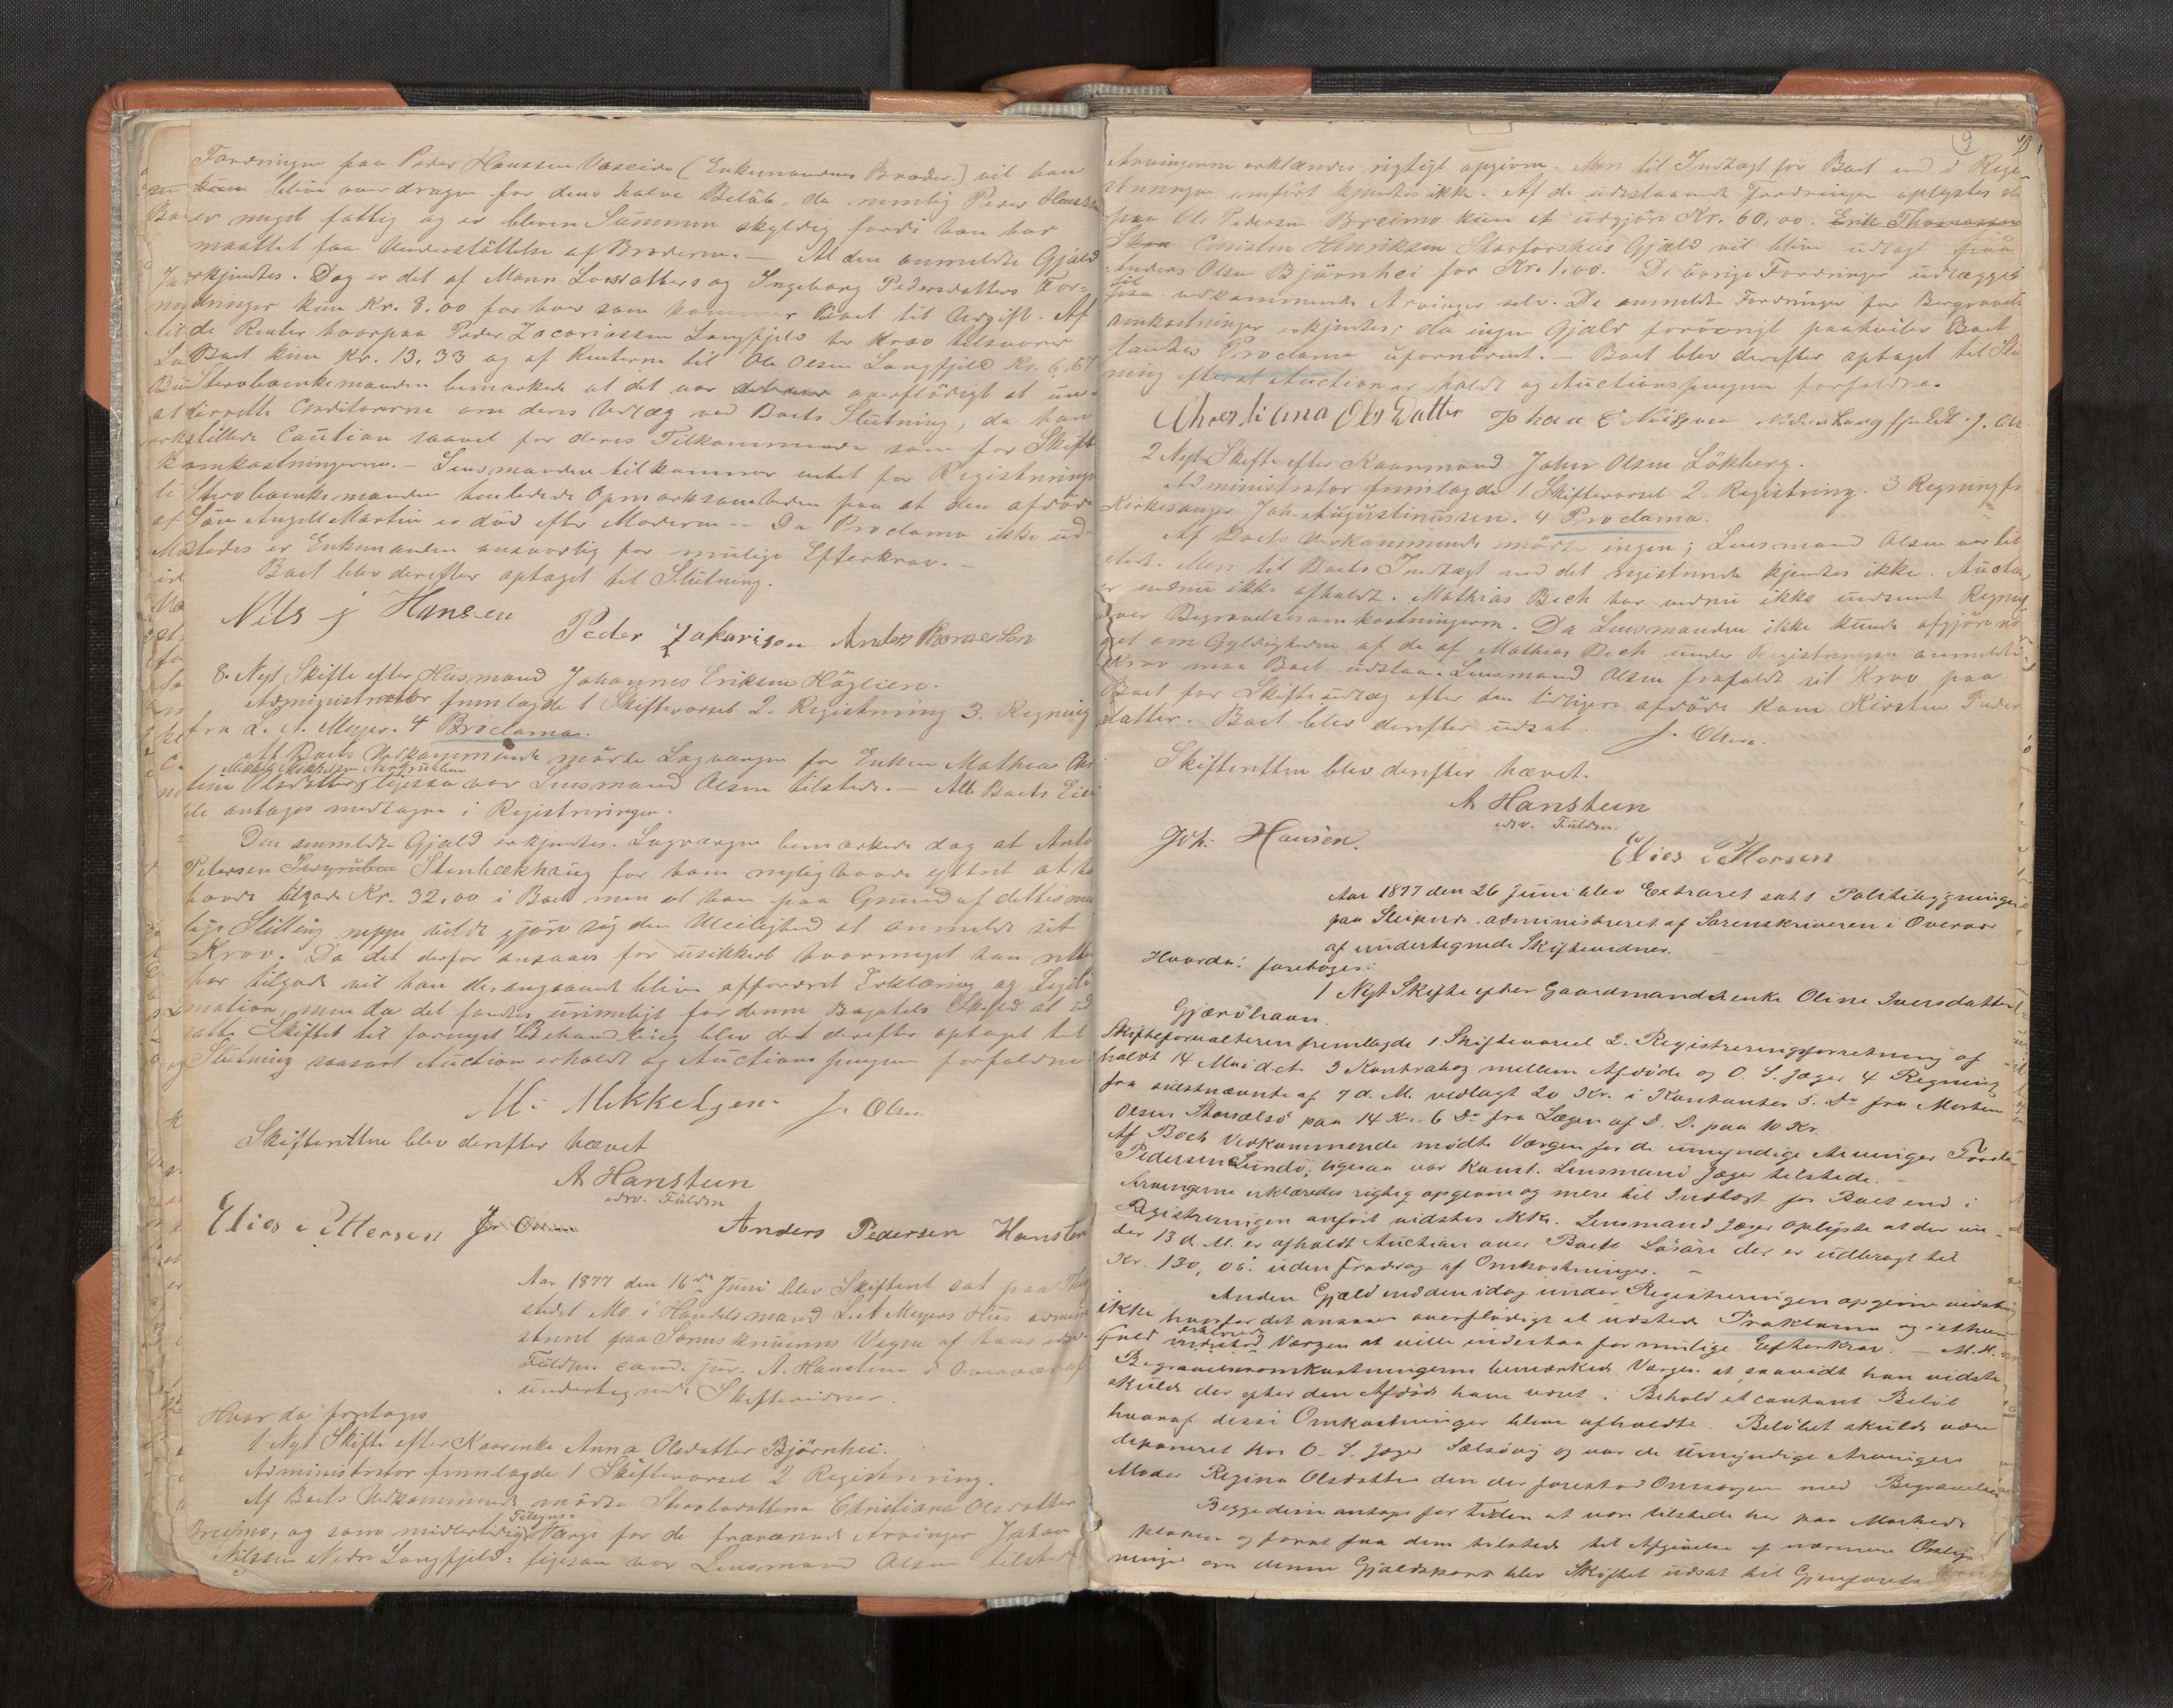 Fordringen paa Peder Hanssen Vaseide (Enkemandens Broder) vil han
kun blive overdragen for dens halve Beløb, da nemlig Peder Hanssen
er meget fattig og er bleven Summen skyldig fordi han har
maattet faa Understøttelse af Broderen. — Al den anmeldte Gjæld
erkjendtes. Dog er det af Maren Larsdatters og Ingeborg Pedersdatters For-
dringer kun Kr. 8,00 for hver som kommer Boet til Udgift. Af
de Renter hvorpaa Peder Zacariassen Langfjeld har Krav tilsvarer
Boet kun Kr. 13,33 og af Renterne til Ole Olsen Langfjeld Kr. 6,67
Stervboenkemanden bemærkede at det var overflødigt at un-
derrette Creditorerne om deres Udlæg ved Boets Slutning, da han
stillede Caution saavel for deres Tilkommende som for Skifte
omkostningerne. — Lensmanden tilkommer intet for Registreringen
Stervboenkemanden henledede Opmærksomheden paa at den afdøde
Søn Angell Martin er død efter Moderen. — Da Proclama ikke ud-
stedes er Enkemanden ansvarlig for mulige Efterkrav. —
Boet blev derefter optaget til Slutning.
Nils j Hansen
Peder Zakarison Anders
8. Nyt Skifte efter Husmand Johannes Eriksen Høglien.
Administrator fremlagde 1 Skiftevarsel 2. Registrering 3. Regning
fra L. A. Meyer. 4 Proclama.
Af Boets Vedkommende mødte Lagværgen for Enken Mathea
Mikkel Mikkelsen
Olsdatter, ligesaa var Lensmand Olsen tilstede. — Alle Boets Eien
dele antages medtagne i Registreringen.
Den anmeldte Gjæld erkjendtes. Lagværgen bemærkede dog at Anto
Petersen Stenbækhaug for ham nylig havde yttret at
havde tilgode Kr. 32,00 i Boet men at han paa Grund af dettes
lige Stilling neppe vilde gjøre sig den Uleilighed at anmelde sit
Krav. Da det derfor ansaaes for usikkert hvormeget han rette
har tilgode vil han desangaaende blive affordret Erklæring og Legiti
mation, men da det fandtes urimeligt for denne Bagatels Skyld at ud
sætte Skiftet til fornyet Behandling blev det derefter optaget til
Slutning saasnart Auction er holdt og Auctionspengene forfaldne
M. Mikkelsen. J. Olsen
Skifteretten blev derefter hævet
A Hansteen
edsv. Fuldm
Elies Pettersen Anders Pedersen
Aar 1877 den 16de Juni blev Skifteret sat paa
stedet Mo i Handelsmand L. A Meyers Hus admini
streret paa Sorenskriverens Vegne af hans edsv.
Fuldm. cand. jur. A. Hansteen i Overvær af
undertegnede Skiftevidner.
Hvor da foretoges
1 Nyt Skifte efter Kaarenke Anna Olsdatter Bjørnhei.
Administrator fremlagde 1 Skiftevarsel 2 Registrering.
Af Boets Vedkommende mødte Stervbodatteren Christiana Olsdatter
Breimo, og som midlertidig Værge for de fraværende Arvinger Johan
Nilssen Nedre Langfjeld: ligesaa var Lensmand Olsen tilstede
9
Arvingerne erklæredes rigtigt opgivne. Mere til Indtægt for Boet end i Regi-
streringen anført kjendtes ikke. Af de udestaaende Fordringer oplystes
paa Ole Pedersen Breimo kun at udgjøre Kr. 60,00. Erik Thomassen
Christen Henriksen Storforsheis Gjæld vil blive udlagt
Anders Olsen Bjørnhei for Kr. 1,00. De øvrige Fordringer udlægges
til vedkommende Arvinger selv. De anmeldte Fordringer for Begravels
omkostninger erkjendtes; da ingen Gjæld forøvrigt paahviler Boet
fandtes Proclama ufornødent. — Boet blev derefter optaget til Slut
ning efterat Auction er holdt og Auctionspengene forfaldne.
Christiana Ols Datter Johan Nilssen Nedre Langfjeldt. J. Ols
2 Nyt Skifte efter Kaarmand John Olsen Løkberg.
Administrator fremlagde 1 Skiftevarsel 2. Registrering. 3 Regning fra
Kirkesanger Joh. Augustinussen. 4 Proclama.
Af Boets Vedkommende mødte ingen; Lensmand Olsen var til
stede. Mere til Boets Indtægt end det registrerede kjendtes ikke. Auction
er endnu ikke afholdt. Mathias Bech har endnu ikke indsendt Regning
over Begravelsesomkostningerne. Da Lensmanden ikke kunde afgjøre no
get om Gyldigheden af de af Mathias Bech under Registreringen anmeldte
Krav maa Boet udstaa. Lensmand Olsen frafaldt sit Krav paa
Boet for Skifteudlæg efter den tidligere afdøde Kone Kirsten Peders
datter. Boet blev derefter udsat. J. Olsen.
Skifteretten blev derefter hævet.
A Hansteen
edsv. Fuldm.
Joh. Hansen.
Elies Pettersen
Aar 1877 den 26 Juni blev Extraret sat i Politibygningen
paa administreret af Sorenskriveren i Overvær
af undertegnede Skiftevidner.
Hvorda: foretoges:
1 Nyt Skifte efter Gaardmandsenke Oline Iversdatter
Gjærøhavn.
Skifteforvalteren fremlagde 1 Skiftevarsel 2. Registreringsforretning af
holdt 14 Mai d. A. 3 Kontrabog mellem Afdøde og O. S. Jæger 4 Regning
fra sidstnævnte af 7 d. M. vedlagt 20 Kr. i Kontanter 5. Do fra Morten
Olsen paa 14 Kr. 6 Do fra Lægen af D. D. paa 10 Kr.
Af Boets Vedkommende mødte Værgen for de umyndige Arvinger
Pedersen Sundø; ligesaa var Konst. Lensmand Jæger tilstede. —
Arvingerne erklæredes rigtig opgivne og mere til Indtægt for Boet end i
Registreringen anført vidstes ikke. Lensmand Jæger oplyste at der un-
der 13 d. M. er afholdt Auction over Boets Løsøre der er udbragt til
Kr. 130,05. uden Fradrag af Omkostninger. —
Anden Gjæld end den idag under Registreringen opgivne vidstes
ikke hvorfor det ansaaes overflødigt at udstede Proklama og
erklærede
Værgen at ville indestaa for mulige Efterkrav. — M. H.
Begravelsesomkostningerne bemærkede Værgen at saavidt han vidste
skulde der efter den Afdøde have været i Behold et contant Beløb
hvoraf disse Omkostninger blev afholdte. Beløbet skulde være
deponeret hos O. S. Jæger Selsøvig og var de Umyndige Arvingers
Moder Regina Olsdatter den der forestod Omsorgen med Begravelsen
Begge disse antages for Tiden at være tilstede her paa Markeds
pladsen og forat faa dem tilstede til Afgivelse af nærmere Oplys-
ninger om denne Gjældspost blev Skiftet udsat til Gjenforeta